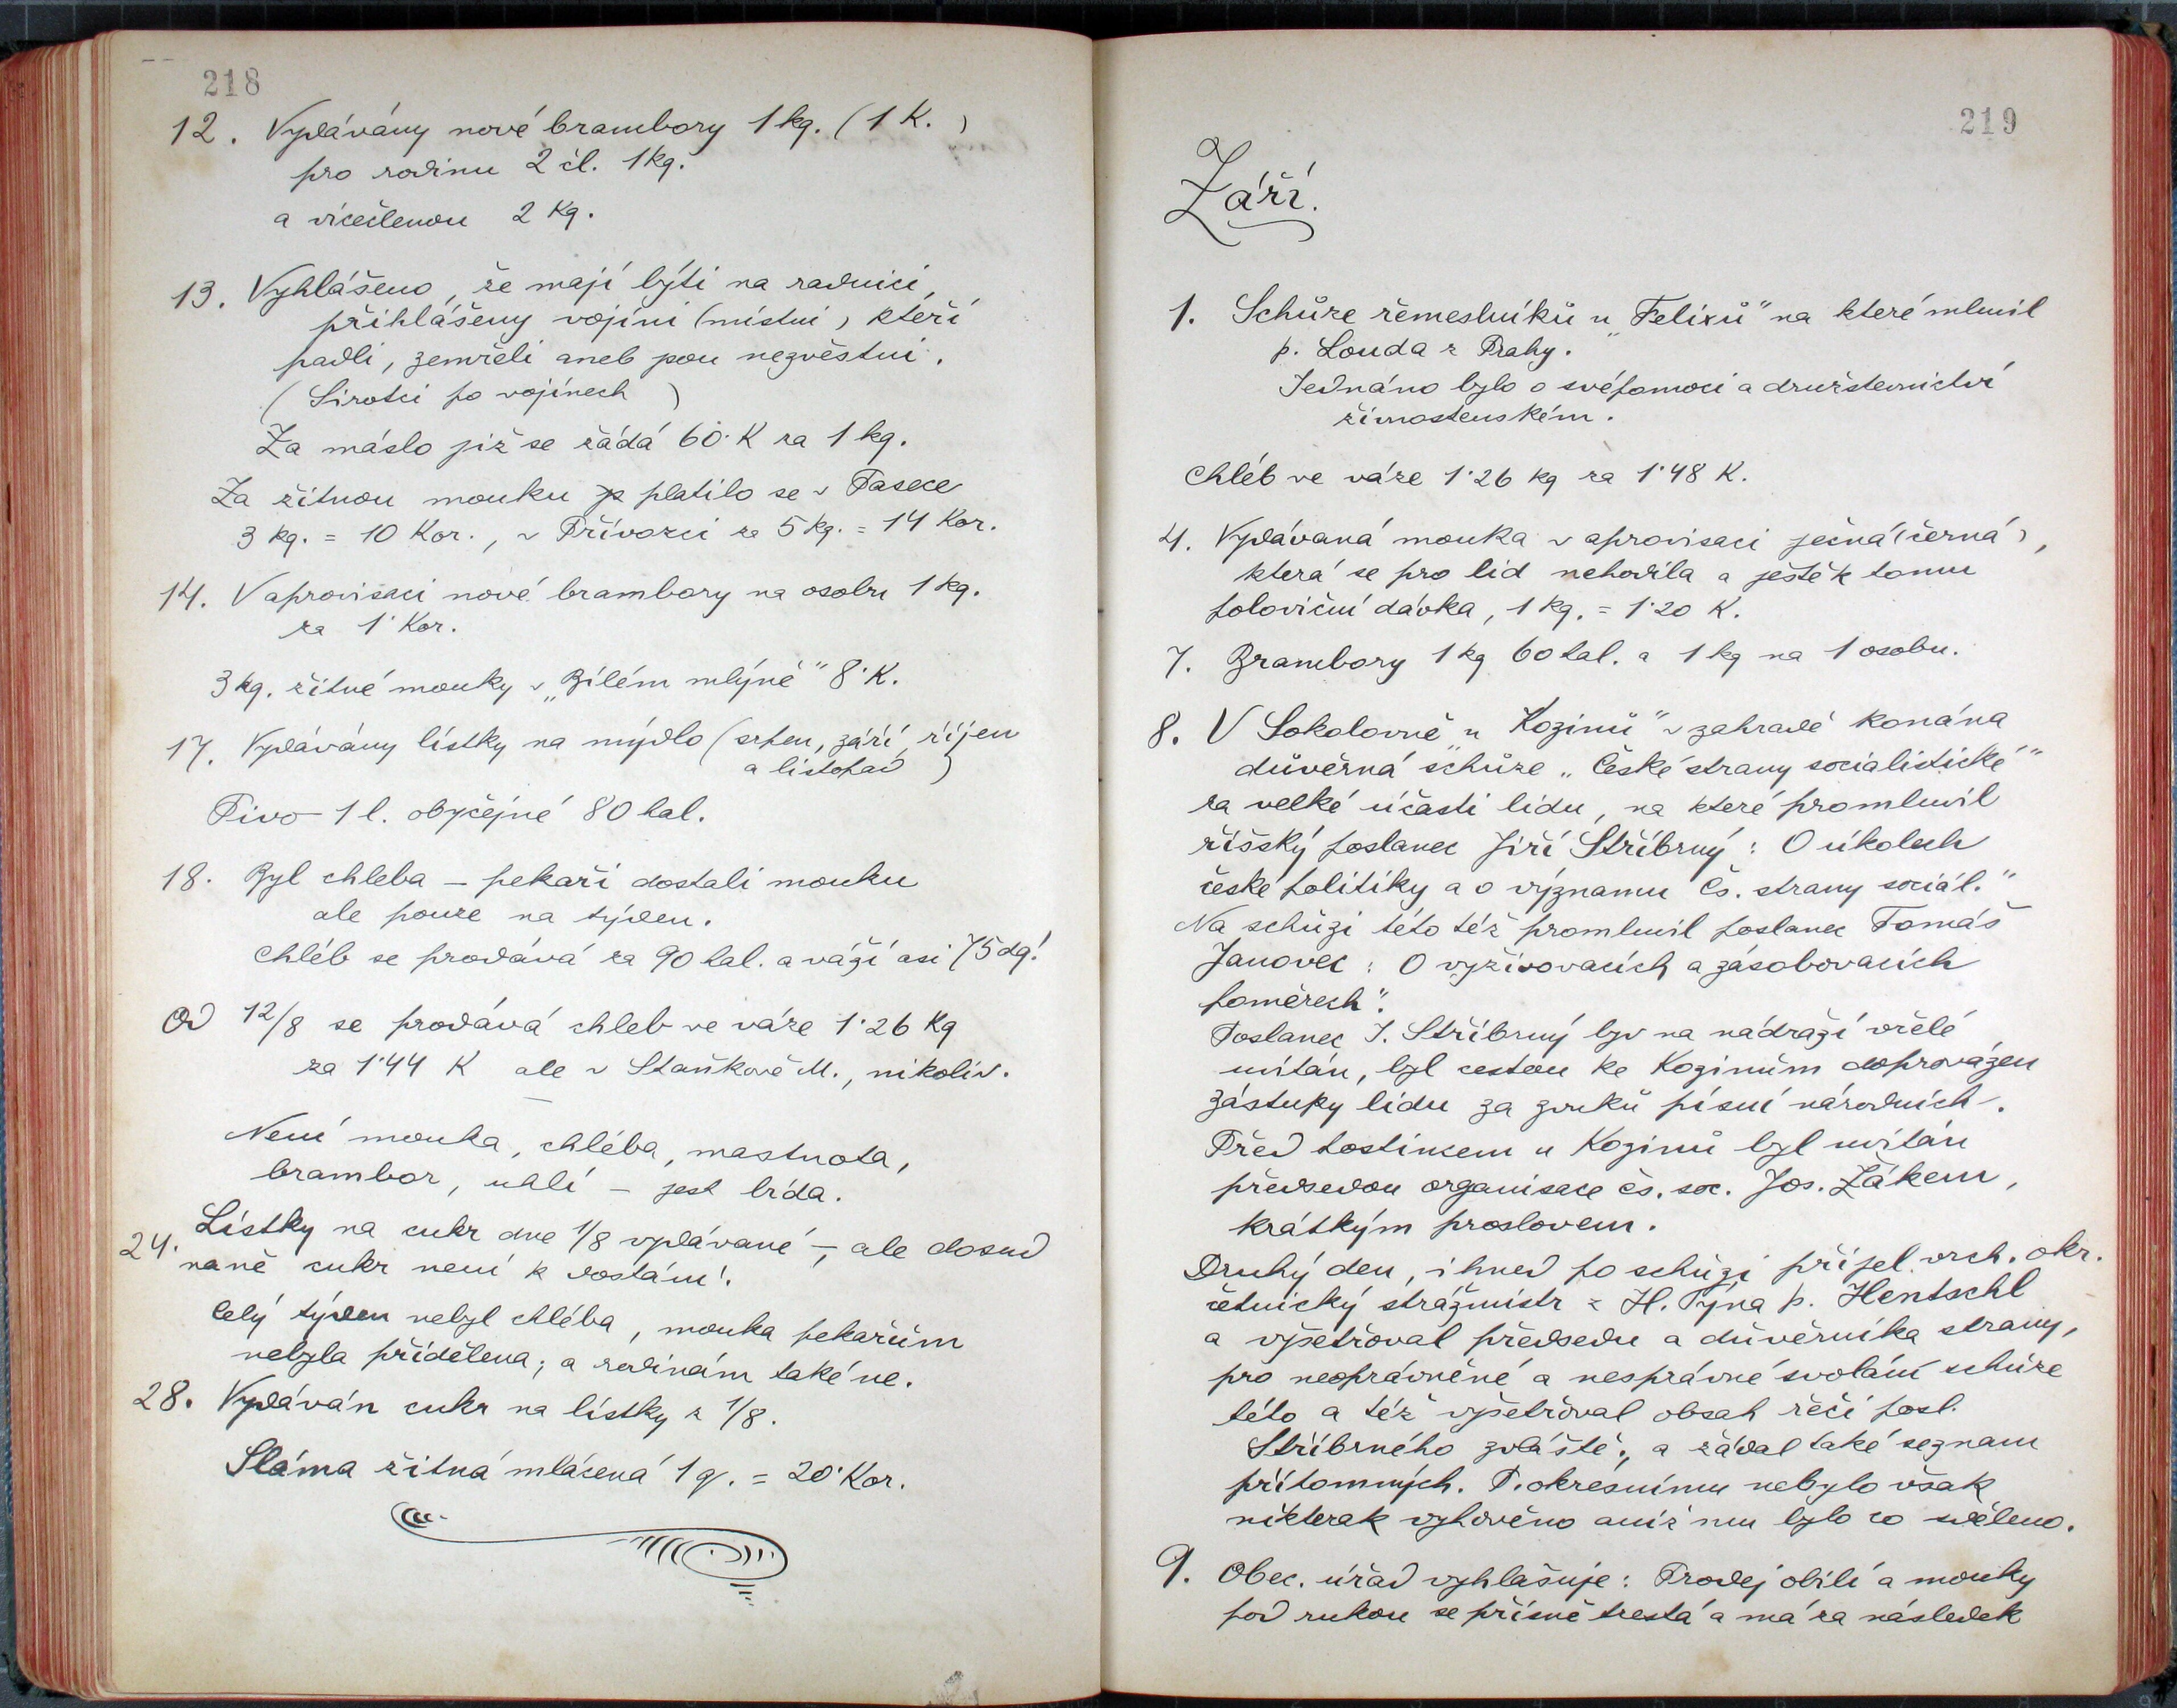 218
12. Vydávány nové brambory 1 kg. (1 K.)
pro rodinu 2 čl. 1 kg.
a vícečlenou 2 Kg.
13. Vyhlášeno, že mají býti na radnici,
přihlášeny vojíni (místní) kteří
padli, zemřeli aneb jsou nezvěstni.
(Sirotci po vojínech)
Za máslo již se žádá 60· K za 1 kg.
Za žitnou mouku platilo se v Pasece
3 kg. = 10 Kor., v Přívozci za 5 kg. = 14 Kor.
14. V aprovisaci nové brambory na osobu 1 kg.
za 1· Kor.
3 kg. žitné mouky v „Bílém mlýně" 8· K.
17. Vydávány lístky na mýdlo (srpen, září, říjen
a listopad)
Pivo 1 l. obyčejné 80 hal.
18. Byl chleba – pekaři dostali mouku
ale pouze na týden.
Chléb se prodává za 90 hal. a váží asi 75 dg!
Od 12/8 se prodává chleb ve váze 1·26 Kg
za 1·44 K ale v Staňkově M., nikoliv.
Není mouka, chléba, mastnota,
brambor, uhlí – jest bída.
24. Lístky na cukr dne 1/8 vydávané –, ale dosud
naně cukr není k dostání.
Celý týden nebyl chléba, mouka pekařům
nebyla přidělena; a rodinám také ne.
28. Vydáván cukr na lístky z 1/8.
Sláma žitná mlácená 1 q. = 20· Kor.
219
Září.
1. Schůze řemeslníků u „Felixů" na které mluvil
p. Louda z Prahy.
Jednáno bylo o svépomoci a družstevnictví
živnostenském.
Chléb ve váze 1·26 kg za 1·48 K.
4. Vydávaná mouka v aprovisaci ječná (černá),
která se pro lid nehodila a ještě k tomu
poloviční dávka, 1 kg. = 1·20 K.
7. Brambory 1 kg 60 hal. a 1 kg na 1 osobu.
8. V Sokolovně „u Kozinů" v zahradě konána
důvěrná schůze „České strany socialistické"
za velké účasti lidu, na které promluvil
říšský poslanec Jiří Stříbrný: O úkolech
české politiky a o významu čs. strany sociál."
Na schůzi této též promluvil poslanec Tomáš
Janovec: O vyživovacích a zásobovacích
poměrech".
Poslanec J. Stříbrný byv na nádraží vřelé
uvítán, byl cestou ke Kozinům doprovázen
zástupky lidu za zvuků písní národních.
Před hostincem u Kozinů byl uvítán
předsedou organisace čs. soc. Jos. Žákem,
krátkým proslovem.
Druhý den, ihned po schůzi přijel vrch. okr.
četnický strážmistr z H. Týna p. Hentschl
a vyšetřoval předsedu a důvěrníka strany,
pro neoprávněné a nesprávné svolání schůze
této a též vyšetřoval obsah řeči posl.
Stříbrného zvláště, a žádal také seznam
přítomných. P. okresnímu nebylo však
nikterak vyhověno aniž mu bylo co sděleno.
9. Obec. úřad vyhlašuje: Prodej obilí a mouky
pod rukou se přísně trestá a má za následek